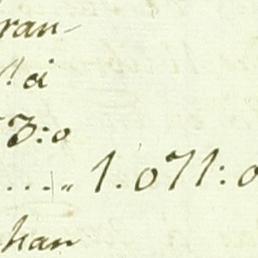 ran-
ai
73:0
....„ 1.071:0
han